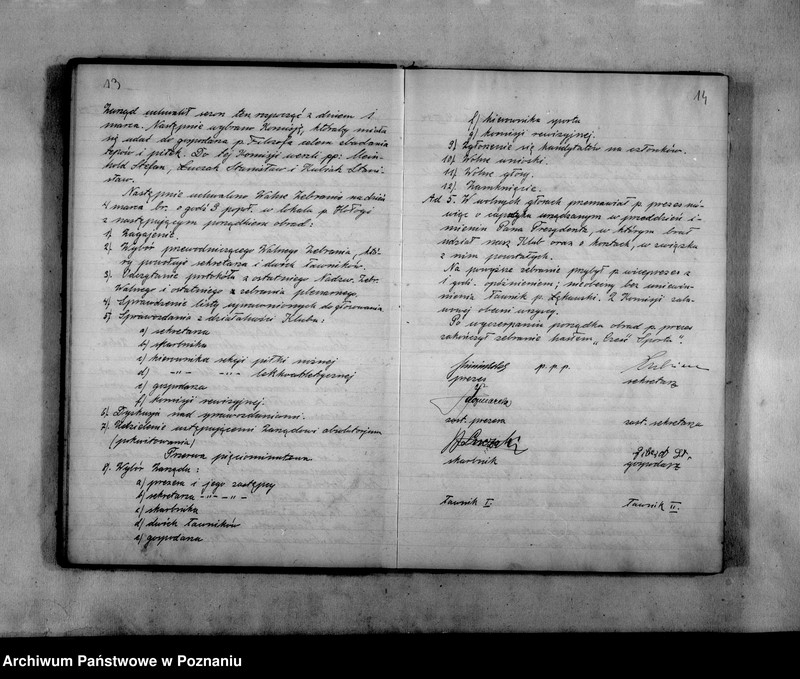 13
Zarząd uchwalił sezon ten rozpocząć z dniem 1
marca. Następnie wybrano Komisję, któraby miała
się udać do gospodarza p. Filozofa celem zbadania
i piłek. Do tej Komisji weszli pp: Mein-
hold Stefan, Luczak Stanisław i Kubiak Stani-
sław.
Następnie uchwalono Walne Zebranie na dzień
4 marca br. o godz 3 popoł. w lokalu p. Hołogi
z następującym porządkiem obrad:
1) Zagajenie.
2) Wybór przewodniczącego Walnego Zebrania, któ-
ry powołuje sekretarza i dwóch ławników.
3) Odczytanie protokółu z ostatniego Nadzw. Zebr.
Walnego i ostatniego z zebrania plenarnego.
4) Sprawdzenie listy uprawnionych do głosowania.
5) Sprawozdania z działalności Klubu:
a) sekretarza
b) skarbnika
c) kierownika sekcji piłki nożnej
d) -"- -"- lekkoatletycznej
e) gospodarza
f) komisji rewizyjnej.
6) Dyskusja nad sprawozdaniami.
7) Udzielenie ustępującemu Zarządowi absolutorjum
(pokwitowania)
Przerwa pięciominutowa
8) Wybór Zarządu:
a) prezesa i jego zastępcy
b) sekretarza -"- -"-
c) skarbnika
d) dwóch ławników
e) gospodarza
14
f) kierownika sportu
g) komisji rewizyjnej.
9) Zgłoszenie się kandydatów na członków.
10) Wolne wnioski.
11) Wolne głosy.
12) Zamknięcie.
Ad 5. W wolnych głosach przemawiał p. prezes mó-
wiąc o urządzanym w przeddzień i-
mienin Pana Prezydenta, w którym brał
udział nasz Klub oraz o kosztach, w związku
z nim powstałych.
Na powyższe zebranie przybył p. wiceprezes z
1 godz. opóźnieniem; nieobecny bez uniewin-
nienia ławnik p. Łękawski. Z Komisji zaba-
wowej obecni wszyscy.
Po wyczerpaniu porządku obrad p. prezes
zakończył zebranie hasłem „Cześć Sportu".
p. p. p.
prezes
sekretarz
zast. prezesa
zast. sekretarza
skarbnik
gospodarz
ławnik I.
ławnik II.
Archiwum Państwowe w Poznaniu